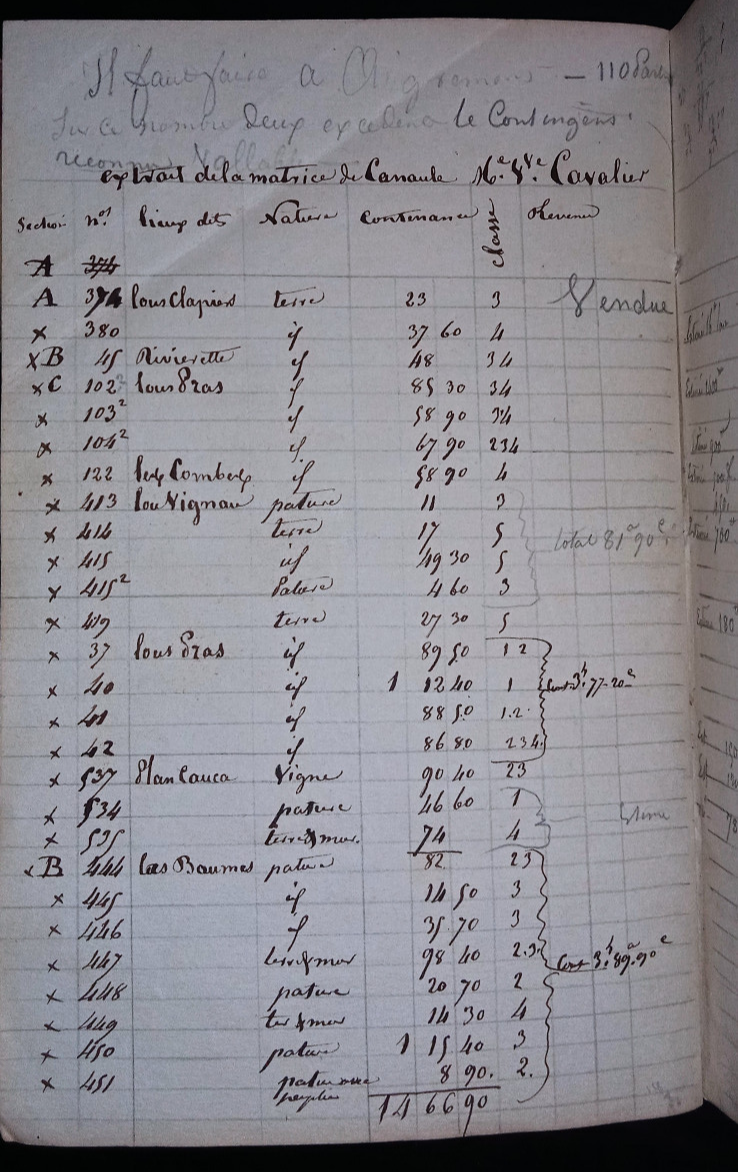 Il faut faire a Aigremont — 110
Sur ce nombre deux excedera le Contingens
reconnu Vallable
extrait de la matrice de Canaule Me Vve Cavalier
Section nos lieux dits Nature Contenance classe Revenu
A 374
A 374 lous Clapiers terre 23 3 Vendue
x 380 id 37 60 4
x B 45 Rivierette id 48 34
x C 102² lous Pras id 85 30 34
x 103² id 58 90 34
x 104² id 67 90 234
x 122 les Combes id 58 90 4
x 413 lou Vignau pature 11 3
x 414 terre 17 5 total 81a 90c
x 415 id 49 30 5
x 415² Pature 4 60 3
x 419 terre 27 30 5
x 37 lous Pras id 89 50 1 2
x 40 id 1 12 40 1 Cont 3h. 77-20c
x 41 id 88 50 1.2.
x 42 id 86 80 234
x 537 Plan Cauca Vigne 90 40 23
x 534 pature 46 60 1
x 535 terre & mur. 74 4
x B 444 las Baumes pature 82 23
x 445 id 14 50 3
x 446 id 35.70 3
x 447 terre & mur 98 40 2.3. Cont 3h. 89a. 90c
x 448 pature 20 70 2
x 449 ter & mur 14 30 4
x 450 pature 1 15 40 3
x 451 pature avec 8 90. 2.
peuplier 14 66 90